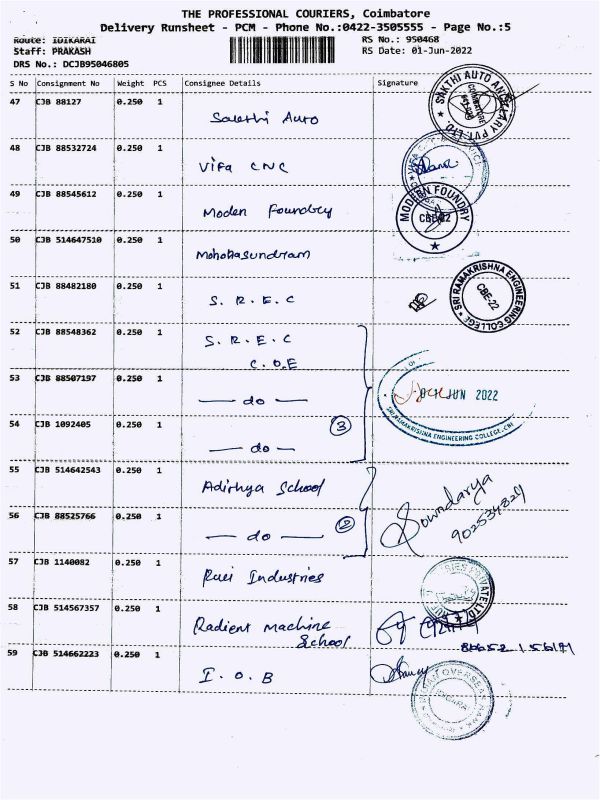 THE PROFESSIONAL COURIERS, Coimbatore
Delivery Runsheet - PCM - Phone No.:0422-3505555 - Page No.:5
Route: IDIKARAI
RS No.: 950468
Staff: PRAKASH
RS Date: 01-Jun-2022
DRS No.: DCJB95046805
S No Consignment No. Weight PCS Consignee Details Signature
47 CJB 88127 0.250 1
Sakthi Auto
SAKTHI AUTO ANCILLARY PVT LTD.
COIMBATORE
48 CJB 88532724 0.250 1
Vifa CNC
49 CJB 88545612 0.250 1
Moden Foundry
MODERN FOUNDRY
CBE-22
50 CJB 514647510 0.250 1
51 CJB 88482180 0.250 1
S. R. E. C
SRI RAMAKRISHNA ENGINEERING COLLEGE
CBE-22
52 CJB 88548362 0.250 1
S. R. E. C
C.O.E
53 CJB 88507197 0.250 1
— do —
JUN 2022
SRI RAMAKRISHNA ENGINEERING COLLEGE, CBE
54 CJB 1092405 0.250 1
3
— do —
55 CJB 514642543 0.250 1
Adithya School
Sowndarya
56 CJB 88525766 0.250 1
— do —
2
57 CJB 1140082 0.250 1
Industries
58 CJB 514567357 0.250 1
Radient Machine
School
59 CJB 514662223 0.250 1
I. O. B
INDIAN OVERSEAS BANK
IDIKARAI